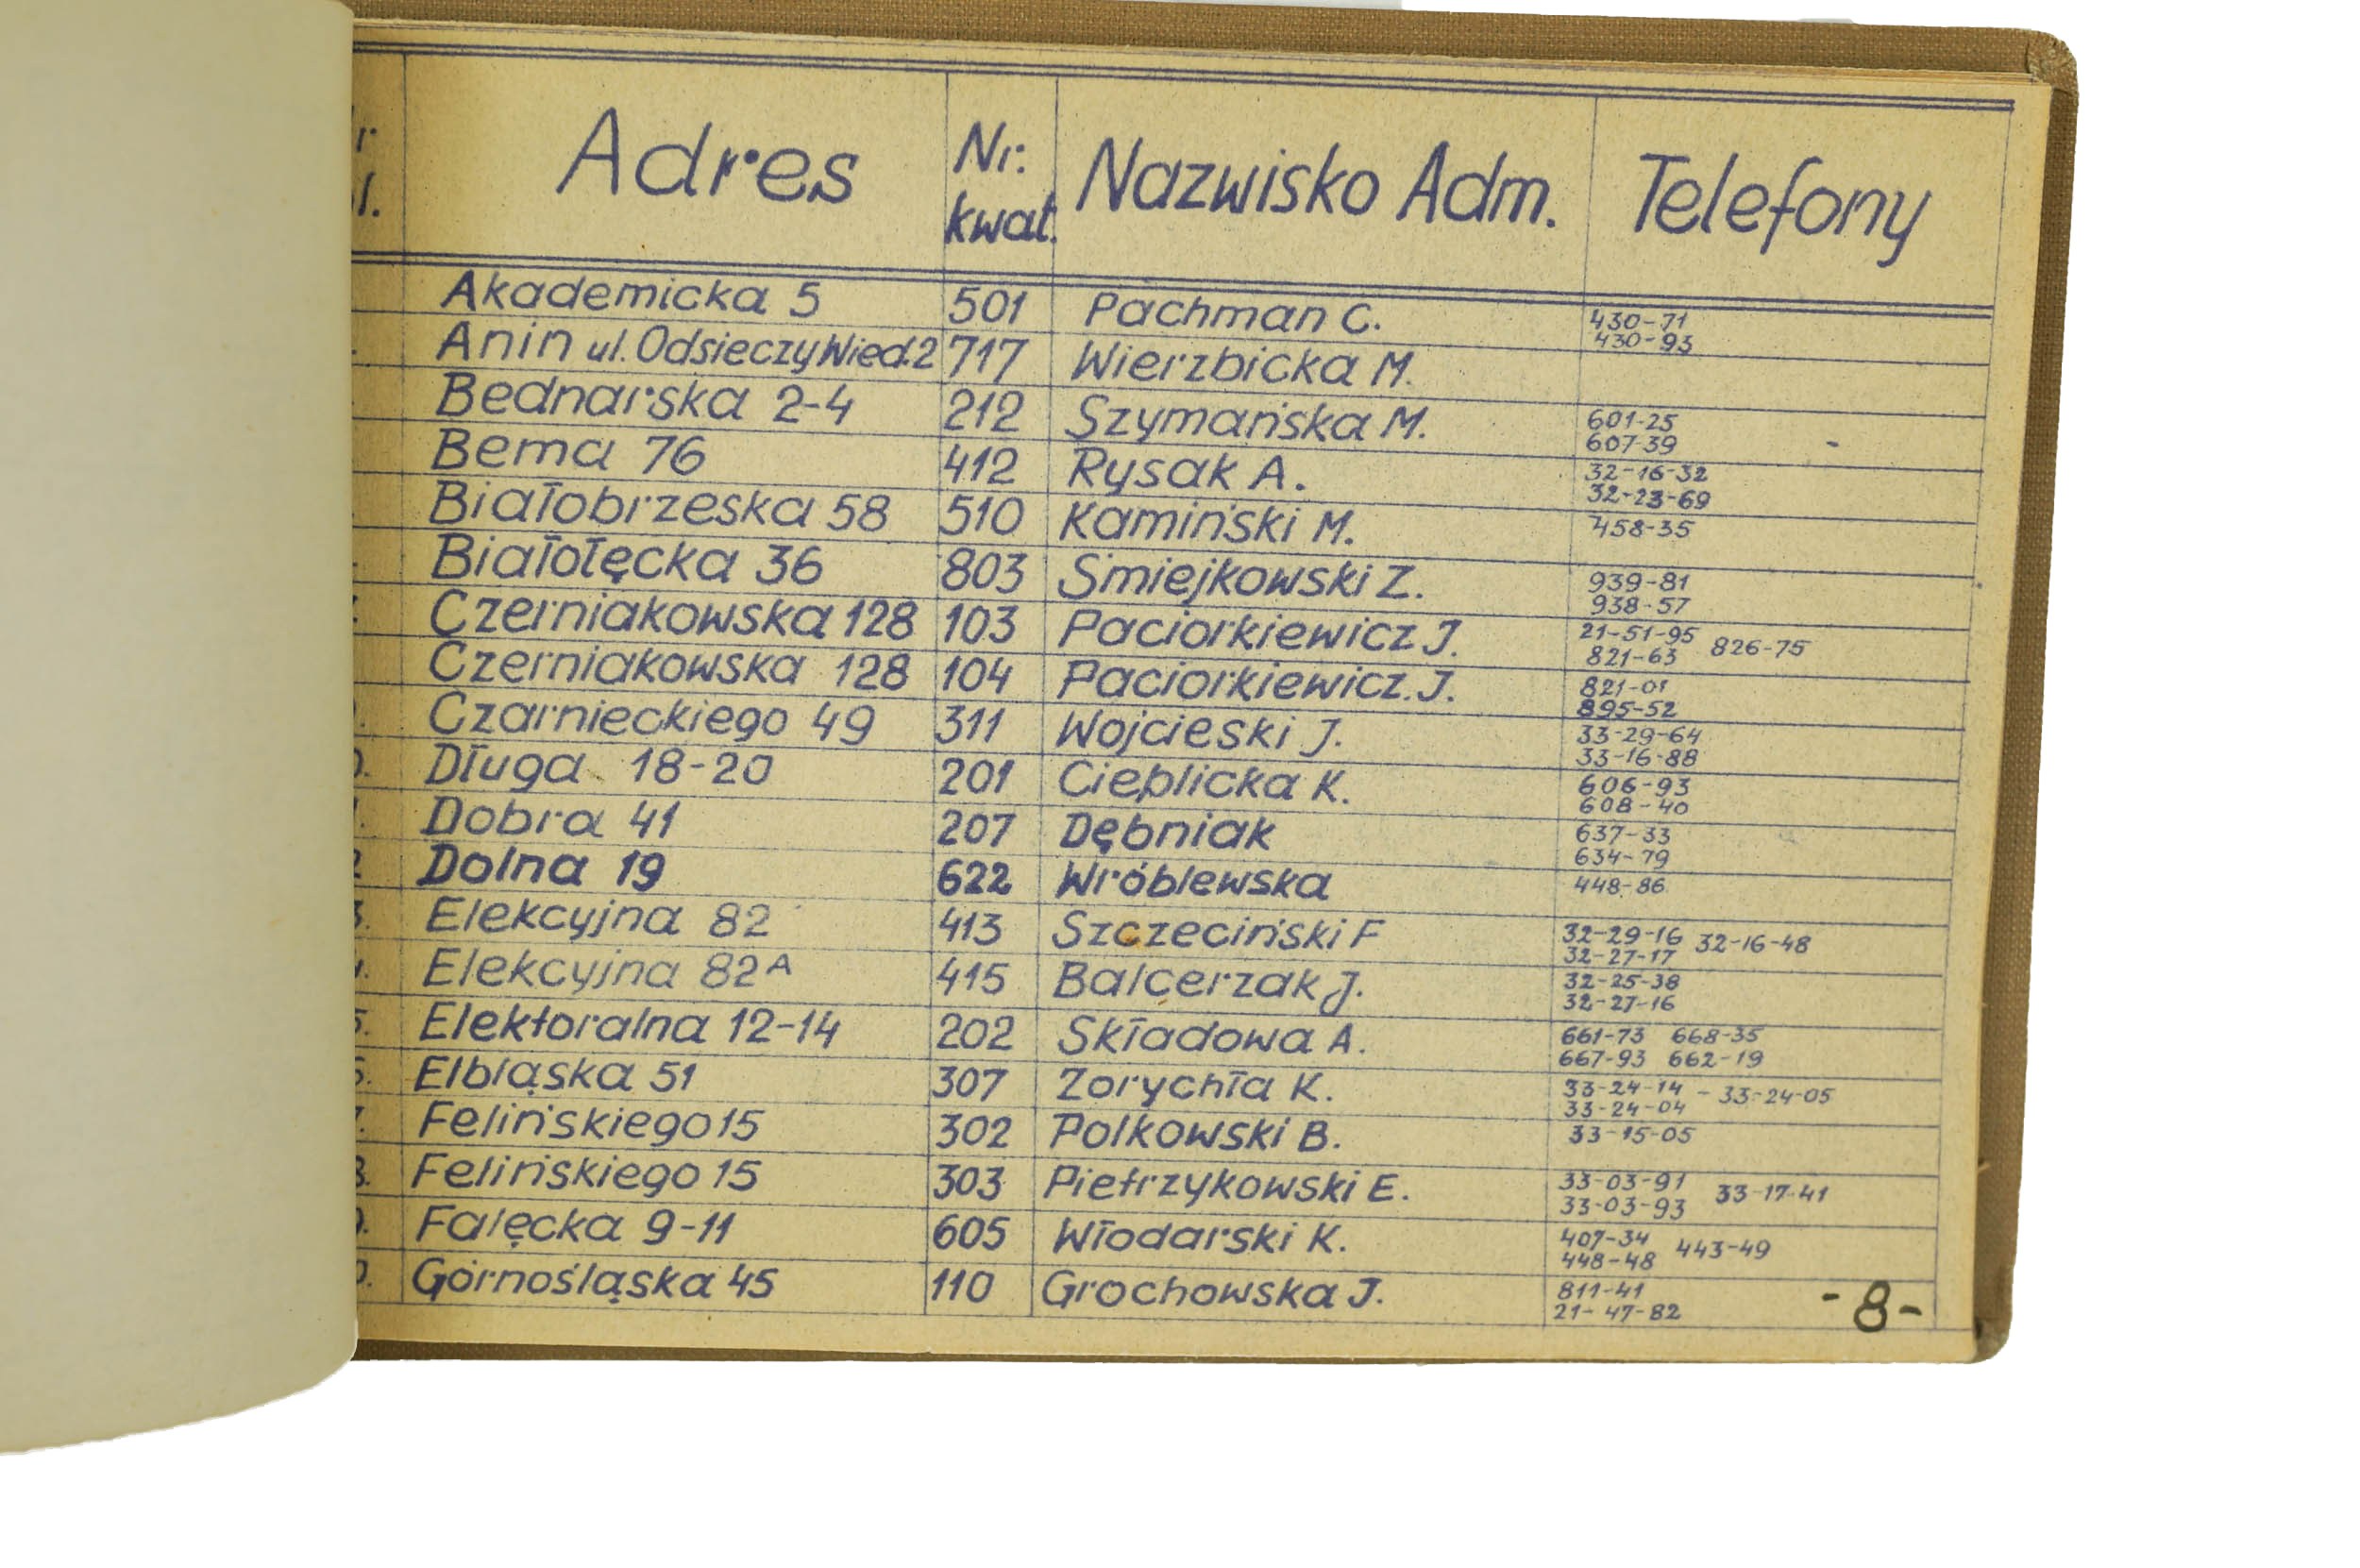 Adres Nr. kwat. Nazwisko Adm. Telefony
Akademicka 5 501 Pachman C. 430-71 430-93
Anin ul. Odsieczy Wied. 2 717 Wierzbicka M.
Bednarska 2-4 212 Szymańska M. 601-25 607-39
Bema 76 412 Rysak A. 32-16-32 32-23-69
Białobrzeska 58 510 Kamiński M. 458-35
Białołęcka 36 803 Śmiejkowski Z. 939-81 938-57
Czerniakowska 128 103 Paciorkiewicz J. 21-51-95 826-75 821-63
Czerniakowska 128 104 Paciorkiewicz. J. 821-01 895-52
Czarnieckiego 49 311 Wojcieski J. 33-29-64 33-16-88
Długa 18-20 201 Cieplicka K. 606-93 608-40
Dobra 41 207 Dębniak 637-33 634-79
Dolna 19 622 Wróblewska 448-86
Elekcyjna 82 413 Szczeciński F 32-29-16 32-16-48 32-27-17
Elekcyjna 82A 415 Balcerzak J. 32-25-38 32-27-16
Elektoralna 12-14 202 Składowa A. 661-73 668-35 667-93 662-19
Elbląska 51 307 Zorychła K. 33-24-14 - 33-24-05 33-24-04
Felińskiego 15 302 Polkowski B. 33-15-05
Felińskiego 15 303 Pietrzykowski E. 33-03-91 33-17-41 33-03-93
Falęcka 9-11 605 Włodarski K. 407-34 443-49 448-48
Górnośląska 45 110 Grochowska J. 811-41 21-47-82
-8-